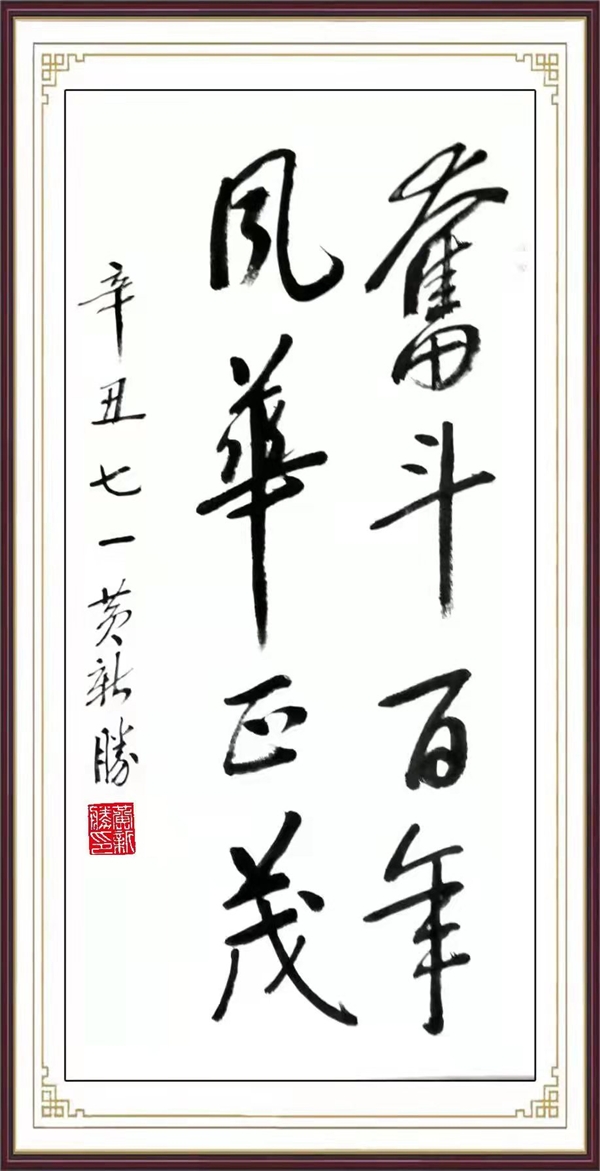 奮斗百年
風華正茂
辛丑七一黄新勝
黄新勝印